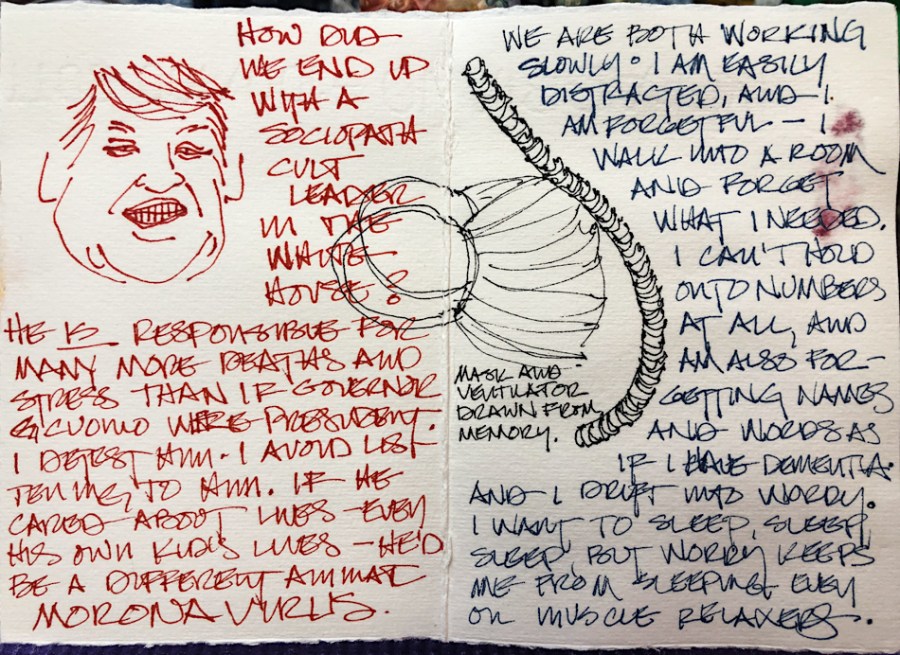 HOW DID
WE END UP
WITH A
SOCIOPATH
CULT
LEADER
IN THE
WHITE
HOUSE?
HE IS RESPONSIBLE FOR
MANY MORE DEATHS AND
STRESS THAN IF GOVERNOR
CUOMO WERE PRESIDENT.
I DETEST HIM. I AVOID LIST-
ENING TO HIM. IF HE
CARED ABOUT LIVES – EVEN
HIS OWN KID'S LIVES – HE'D
BE A DIFFERENT ANIMAL
MORONAVIRUS.
MASK AND
VENTILATOR
DRAWN FROM
MEMORY.
WE ARE BOTH WORKING
SLOWLY. I AM EASILY
DISTRACTED, AND I
AM FORGETFUL – I
WALK INTO A ROOM
AND FORGET
WHAT I NEEDED.
I CAN'T HOLD
ONTO NUMBERS
AT ALL, AND
AM ALSO FOR-
GETTING NAMES
AND WORDS AS
IF I HAVE DEMENTIA.
AND I DRIFT INTO WORRY.
I WANT TO SLEEP, SLEEP,
SLEEP, BUT WORRY KEEPS
ME FROM SLEEPING EVEN
ON MUSCLE RELAXERS.